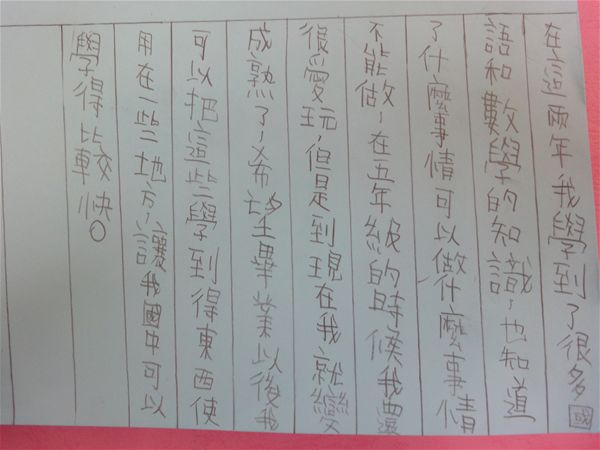 在這兩年,我學到了很多國
語和數學的知識,也知道
了什麼事情可以做什麼事情
不能做,在五年級的時候我還
很愛玩,但是到現在我就變
成熟了,希望畢業以後我
可以把這些學到得東西使
用在一些地方,讓我國中可以
學得比較快。